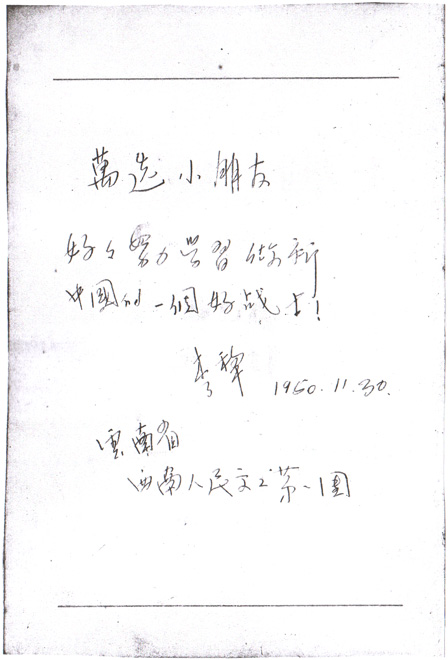 萬选小朋友
好々努力学習做新
中國的一個好战士!
李輝 1950.11.30.
雲南省
西南人民文工第一團